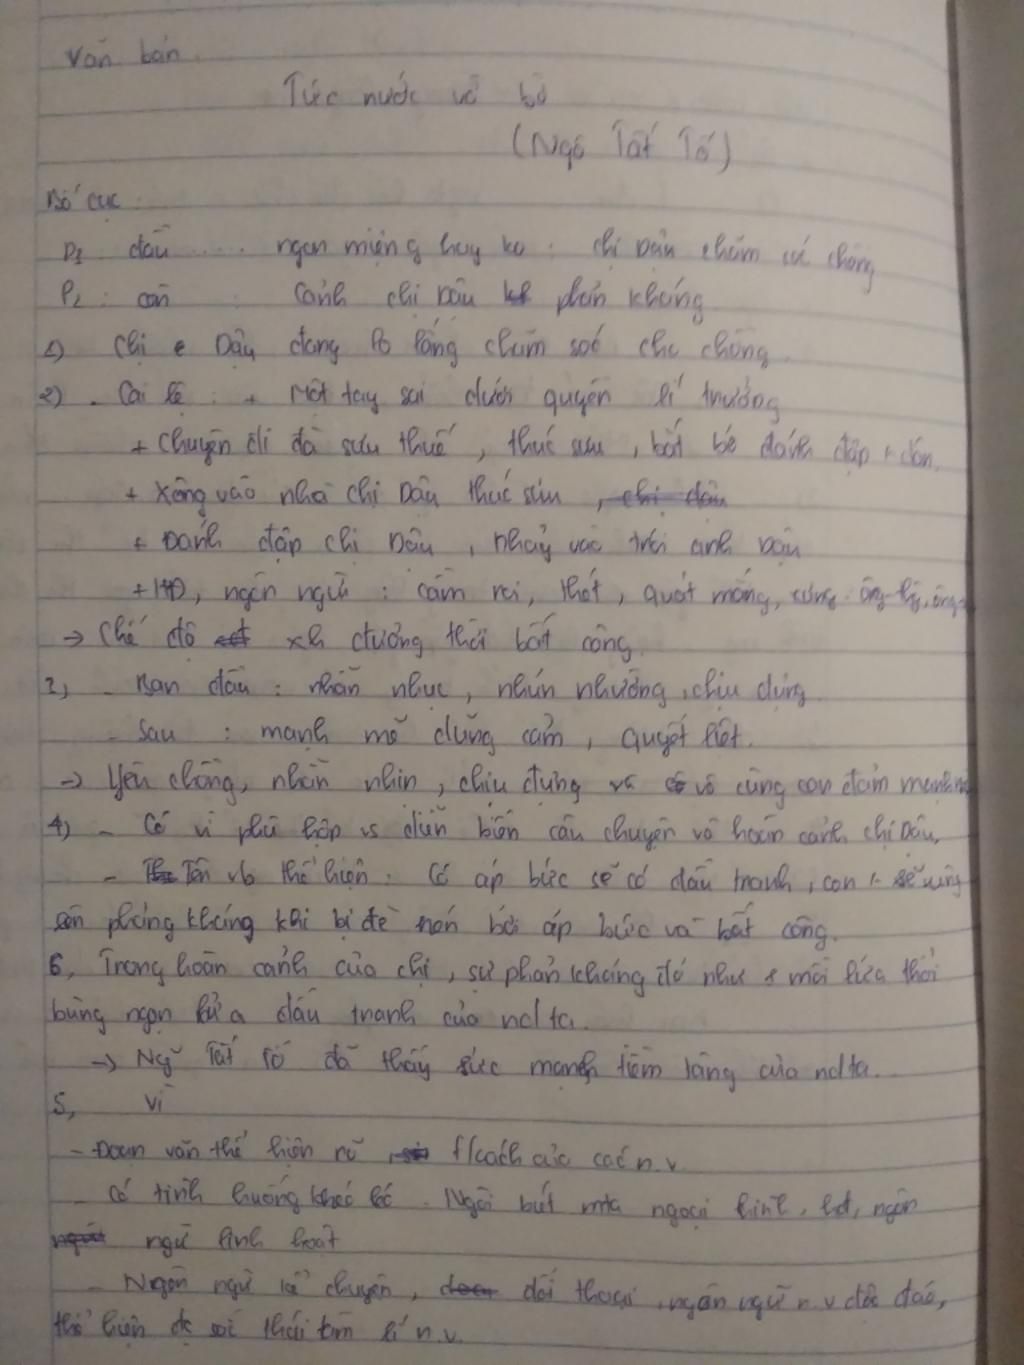 Văn bản.
Tức nước vỡ bờ
(Ngô Tất Tố)
Bố cục :
P1 đầu ..... ngon miệng hay ko : chị Dậu chăm sóc chồng
P2 : còn : Cảnh chị Dậu phản kháng
1) Chị Dậu đang lo lắng chăm soc cho chồng.
2) - Cai lệ : + Một tay sai dưới quyền lí trưởng
+ Chuyên đi đòi sưu thuế, thúc sưu, bắt bớ đánh đập dân.
+ Xông vào nhà chị Dậu thúc sưu, chị dậu
+ Đánh đập chị Dậu, nhảy vào trói anh Dậu
+ HĐ, ngôn ngữ : hét, quát mắng, xưng ông
→ Chế độ xh đương thời bất công.
- Ban đầu : nhẫn nhục, nhún nhường, chịu đựng.
- Sau : mạnh mẽ dũng cảm, quyết liệt.
→ Yêu chồng, nhẫn nhịn, chịu đựng và vô cùng can đảm
4) - Có vì phù hợp vs diễn biến câu chuyện và hoàn cảnh chị Dậu.
- Tên vb thể hiện : Có áp bức sẽ có đấu tranh, con
phảng kháng khi bị đè nén bởi áp bức và bất công.
6, Trong hoàn cảnh của chị, sự phản kháng đó như mồi lửa thổi
bùng ngọn lửa đấu tranh của nd ta.
→ Ngô Tất Tố đã thấy sức mạnh tiềm tàng của nd ta.
5, Vì
- Đoạn văn thể hiện rõ t/cách của các n.v
- Có tình huống Ngòi bút mtả ngoại hình, hđ, ngôn
ngữ linh hoạt
- Ngôn ngữ kể chuyện, đối thoại, ngôn ngữ n.v độc đáo,
thể hiện đc thái tâm lí n.v.